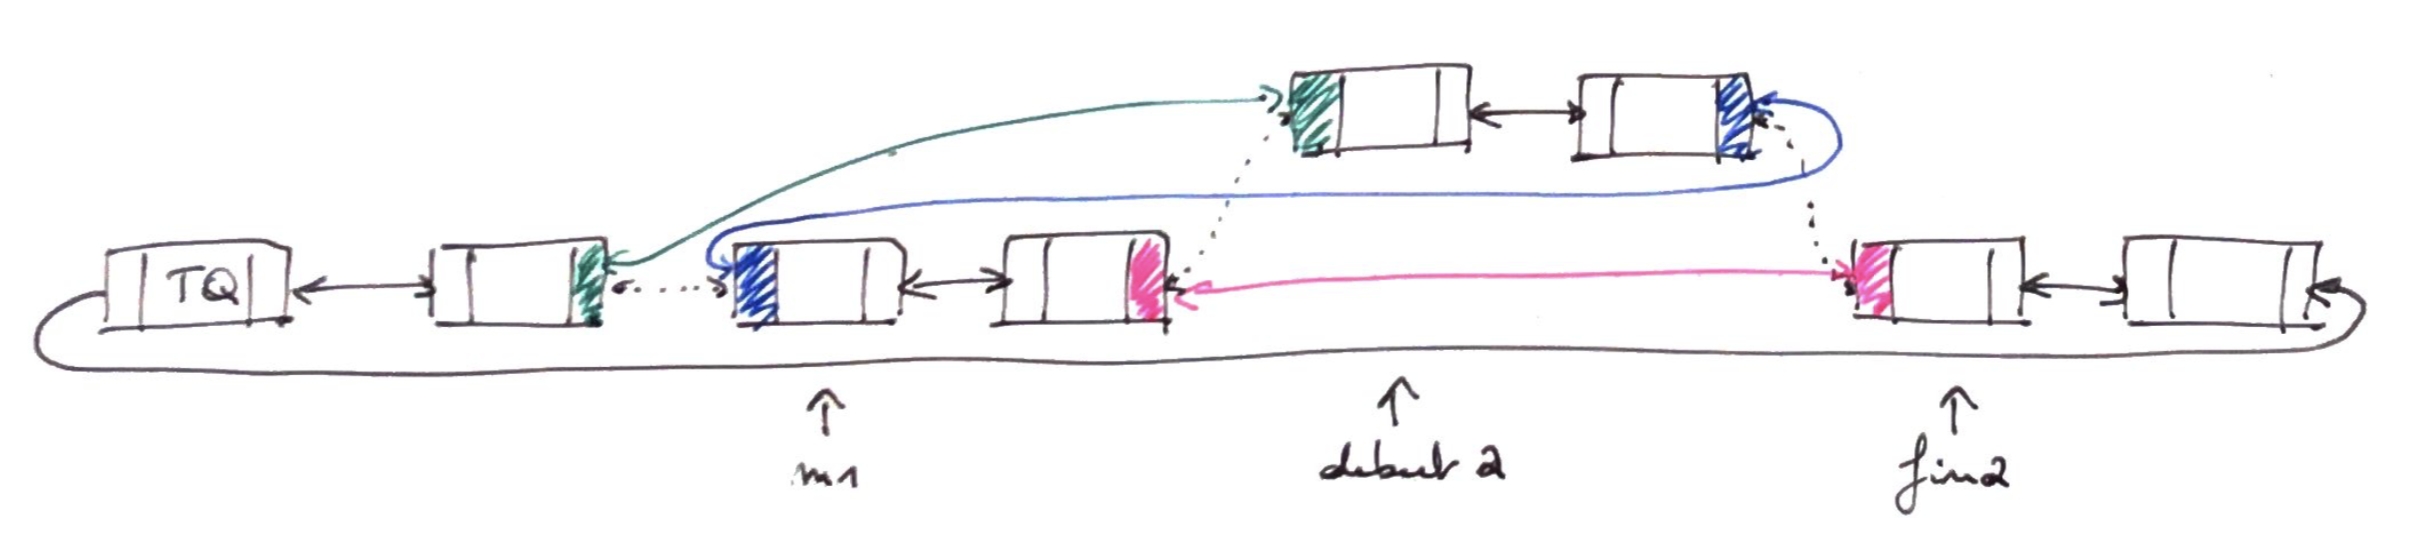 TQ
m1
debut 2
fin2